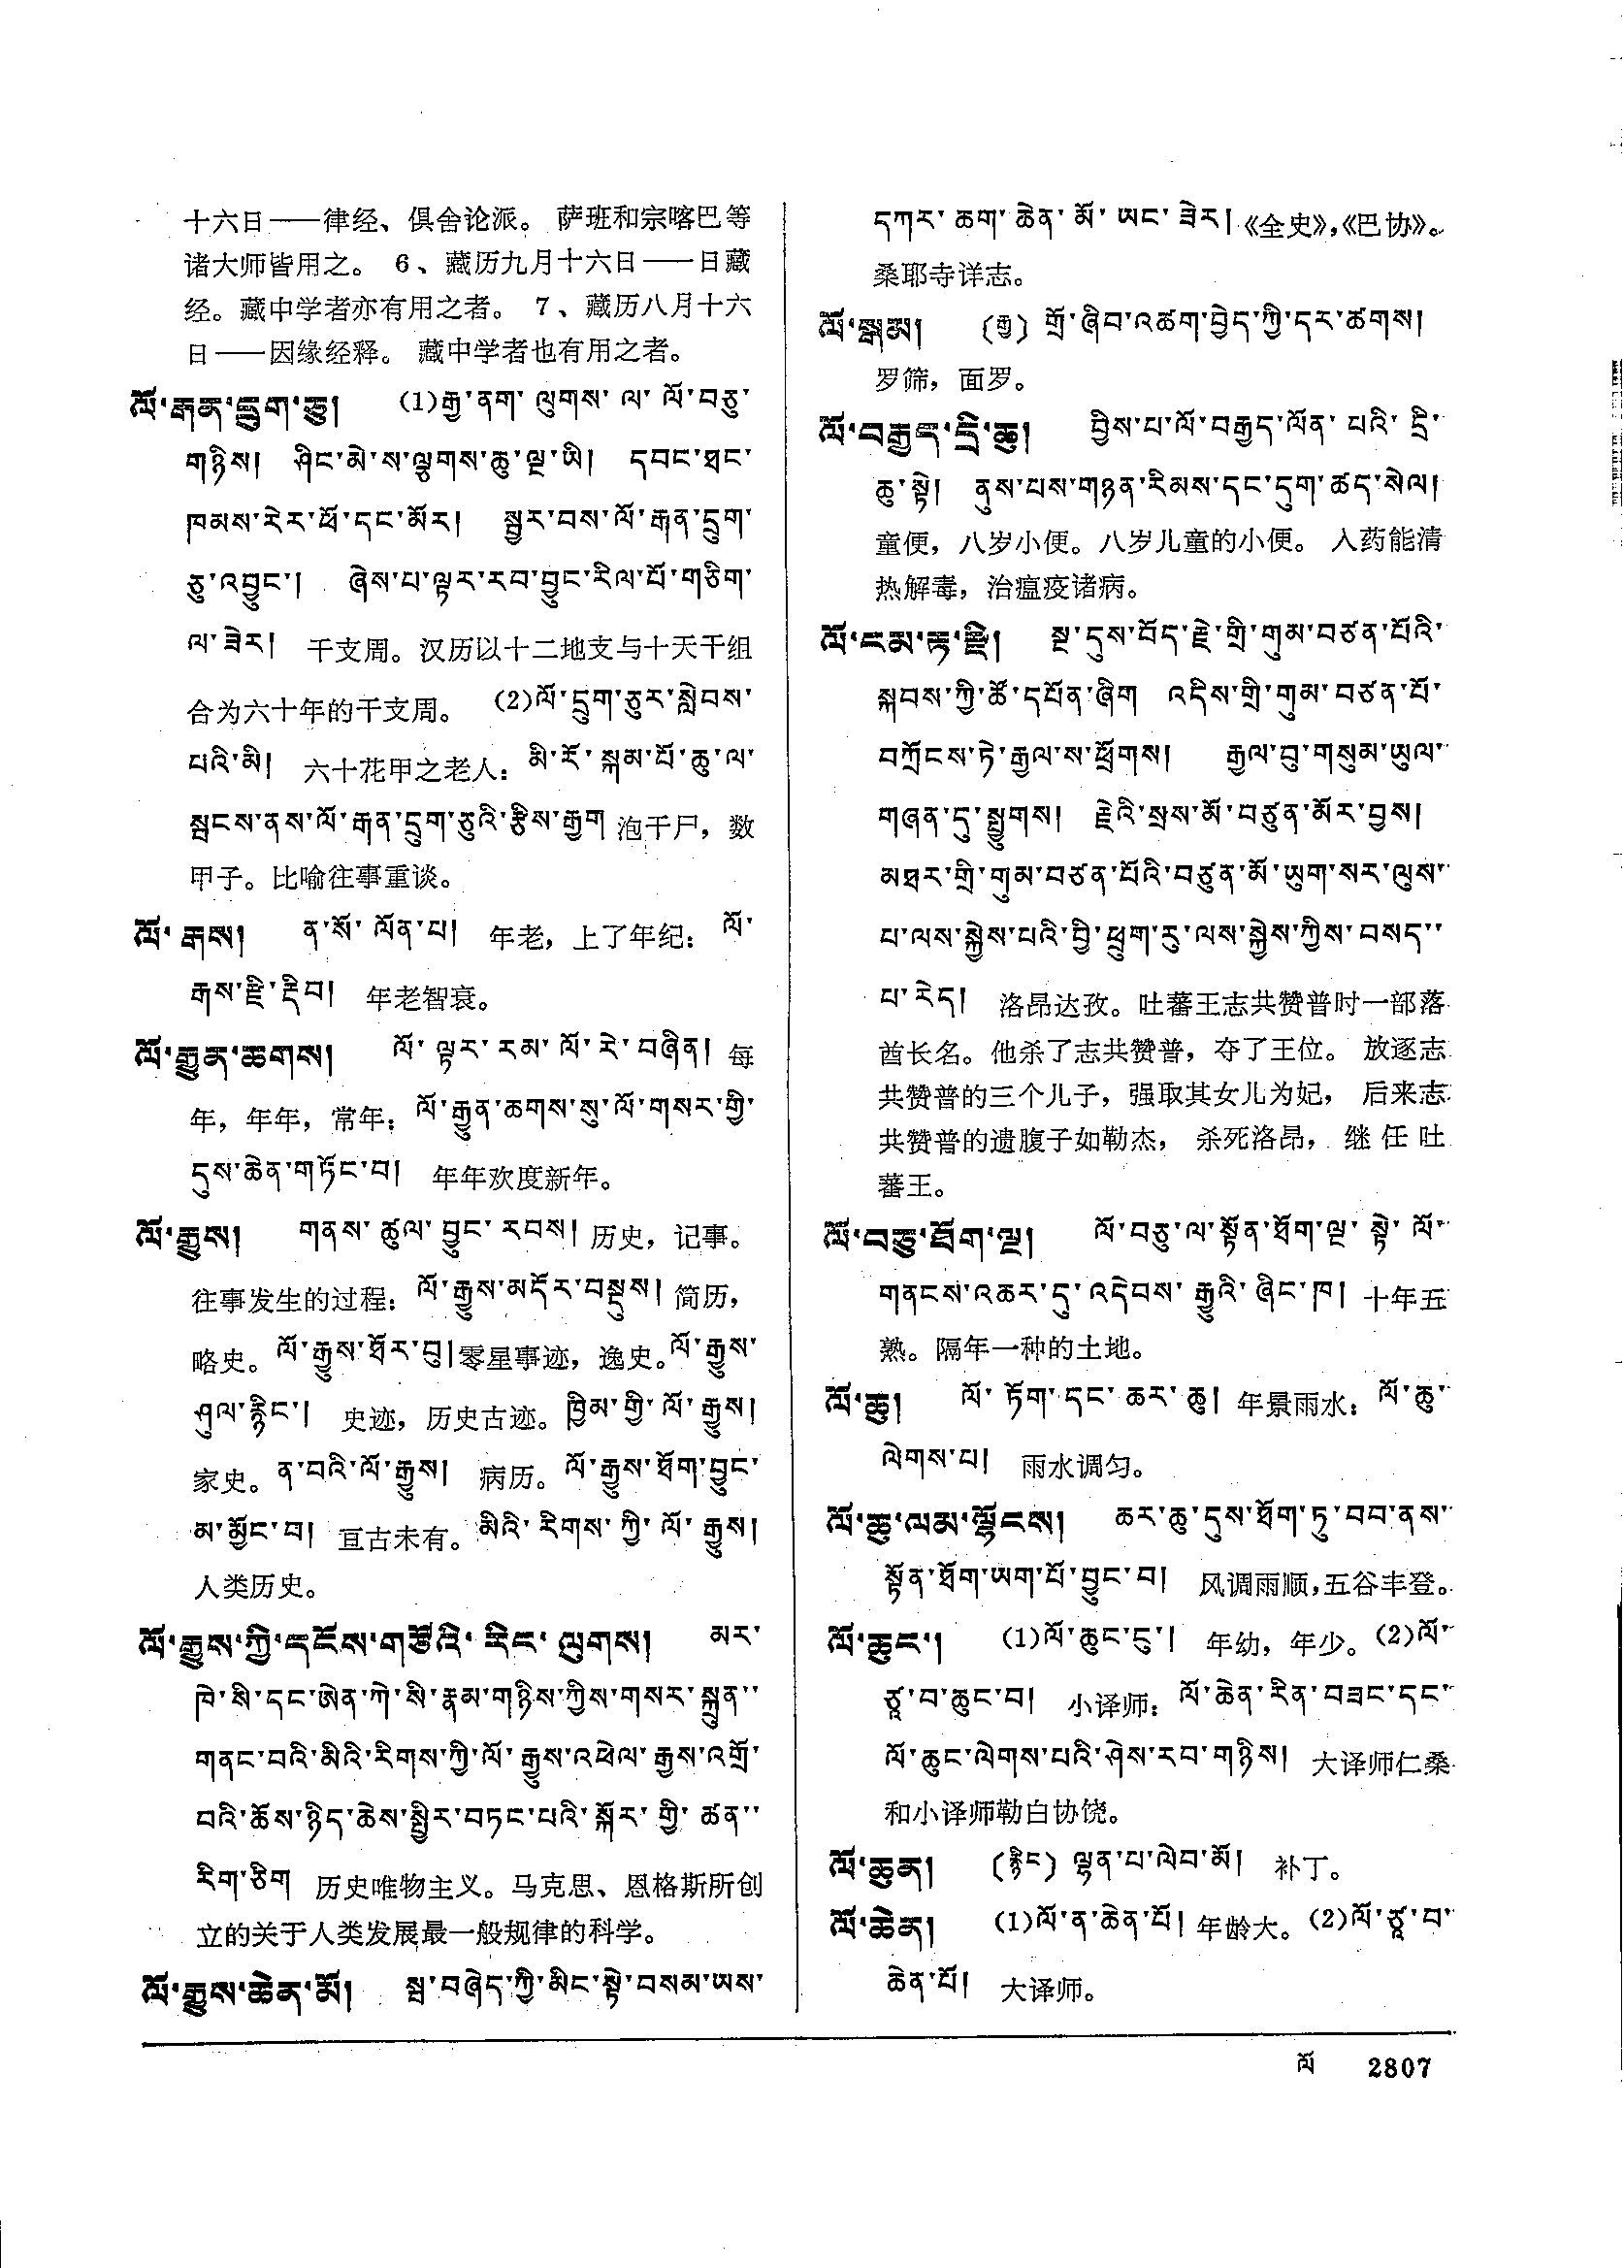 十六日——律经、俱舍论派。 萨班和宗喀巴等
诸大师皆用之。 6、藏历九月十六日——日藏
经。藏中学者亦有用之者。 7、藏历八月十六
日——因缘经释。 藏中学者也有用之者。
ལོ་རྒན་དྲུག་ཅུ། (1)རྒྱ་ནག་ ལུགས་ ལ་ ལོ་བཅུ་
གཉིས། ཤིང་མེ་ས་ལྕགས་ཆུ་ལྔ་ཡི། དབང་ཐང་
ཁམས་རེར་ཕོ་དང་མོར། སྦྱར་བས་ལོ་རྒན་དྲུག་
ཅུ་འབྱུང་། ཞེས་པ་ལྟར་རབ་བྱུང་རིལ་པོ་གཅིག་
ལ་ ཟེར། 干支周。汉历以十二地支与十天干组
合为六十年的干支周。 (2)ལོ་དྲུག་ཅུར་སླེབས་
པའི་མི། 六十花甲之老人：མི་རོ་ སྐམ་པོ་ཆུ་ལ་
སྦངས་ནས་ལོ་རྒན་དྲུག་ཅུའི་རྩིས་རྒྱག 泡干尸，数
甲子。比喻往事重谈。
ལོ་ རྒས། ན་སོ་ ལོན་པ། 年老，上了年纪：ལོ་
རྒས་རྫི་རྡིབ། 年老智衰。
ལོ་རྒྱུན་ཆགས། ལོ་ ལྟར་ རམ་ ལོ་ རེ་ བཞིན། 每
年，年年，常年：ལོ་རྒྱུན་ཆགས་སུ་ལོ་གསར་གྱི་
དུས་ཆེན་གཏོང་བ། 年年欢度新年。
ལོ་རྒྱུས། གནས་ ཚུལ་ བྱུང་ རབས། 历史，记事。
往事发生的过程：ལོ་རྒྱུས་མདོར་བསྡུས། 简历，
略史。ལོ་རྒྱུས་ཐོར་བུ། 零星事迹，逸史。ལོ་རྒྱུས་
ཤུལ་རྙིང་། 史迹，历史古迹。ཁྱིམ་གྱི་ ལོ་ རྒྱུས།
家史。ན་བའི་ལོ་རྒྱུས། 病历。ལོ་རྒྱུས་ཐོག་བྱུང་
མ་མྱོང་བ། 亘古未有。མིའི་ རིགས་ ཀྱི་ ལོ་ རྒྱུས།
人类历史。
ལོ་རྒྱུས་ཀྱི་དངོས་གཙོའི་ རིང་ ལུགས། མར་
ཁེ་སི་དང་ཨེན་ཀེ་སི་རྣམ་གཉིས་ཀྱིས་གསར་སྐྲུན་་
གནང་བའི་མིའི་རིགས་ཀྱི་ལོ་ རྒྱུས་འཕེལ་རྒྱས་འགྲོ་
བའི་ཆོས་ཉིད་ཆེས་སྤྱིར་བཏང་པའི་སྐོར་ གྱི་ ཚན་་
རིག་ཅིག 历史唯物主义。马克思、恩格斯所创
立的关于人类发展最一般规律的科学。
ལོ་རྒྱུས་ཆེན་མོ། སྦ་བཞེད་ཀྱི་མིང་སྟེ་བསམ་ཡས་
དཀར་ ཆག་ ཆེན་ མོ་ ཡང་ ཟེར། 《全史》，《巴协》。
桑耶寺详志。
ལོ་སྒམ། (རྒྱ) གྲོ་ཞིབ་འཚག་བྱེད་ཀྱི་དར་ཚགས།
罗筛，面罗。
ལོ་བརྒྱད་དྲི་ཆུ། བྱིས་པ་ལོ་བརྒྱད་ལོན་ པའི་ དྲི་
ཆུ་སྟེ། ནུས་པས་གཉན་རིམས་དང་དུག་ཚད་སེལ།
童便，八岁小便。八岁儿童的小便。 入药能清
热解毒，治瘟疫诸病。
ལོ་ངམ་རྟ་རྫི། སྔ་དུས་བོད་རྗེ་གྲི་གུམ་བཙན་པོའི་
སྐབས་ཀྱི་ཚོ་དཔོན་ཞིག འདིས་གྲི་གུམ་བཙན་པོ་
བཀྲོངས་ཏེ་རྒྱལ་ས་ཕྲོགས། རྒྱལ་བུ་གསུམ་ཡུལ་
གཞན་དུ་སྤྱུགས། རྗེའི་སྲས་མོ་བཙུན་མོར་བྱས།
མཐར་གྲི་གུམ་བཙན་པོའི་བཙུན་མོ་ཡུག་སར་ལུས་
པ་ལས་སྐྱེས་པའི་བྱི་ཕྲུག་རུ་ལས་སྐྱེས་ཀྱིས་བསད་་
པ་རེད། 洛昂达孜。吐蕃王志共赞普时一部落
酋长名。他杀了志共赞普，夺了王位。 放逐志
共赞普的三个儿子，强取其女儿为妃， 后来志
共赞普的遗腹子如勒杰， 杀死洛昂，继任吐
蕃王。
ལོ་བཅུ་ཐོག་ལྔ། ལོ་བཅུ་ལ་སྟོན་ཐོག་ལྔ་ སྟེ་ ལོ་
གནངས་འཆར་དུ་འདེབས་ རྒྱུའི་ ཞིང་ཁ། 十年五
熟。隔年一种的土地。
ལོ་ཆུ། ལོ་ ཏོག་དང་ ཆར་ ཆུ། 年景雨水：ལོ་ཆུ་
ལེགས་པ། 雨水调匀。
ལོ་ཆུ་ལམ་ལྷོངས། ཆར་ཆུ་དུས་ཐོག་ཏུ་བབ་ནས་
སྟོན་ཐོག་ཡག་པོ་བྱུང་བ། 风调雨顺，五谷丰登。
ལོ་ཆུང་། (1)ལོ་ཆུང་ངུ་། 年幼，年少。(2)ལོ་
ཙཱ་བ་ཆུང་བ། 小译师：ལོ་ཆེན་རིན་བཟང་དང་
ལོ་ཆུང་ལེགས་པའི་ཤེས་རབ་གཉིས། 大译师仁桑
和小译师勒白协饶。
ལོ་ཆུན། (རྙིང) ལྷན་པ་ལེབ་མོ། 补丁。
ལོ་ཆེན། (1)ལོ་ན་ཆེན་པོ། 年龄大。(2)ལོ་ཙཱ་བ་
ཆེན་པོ། 大译师。
ལོ 2807